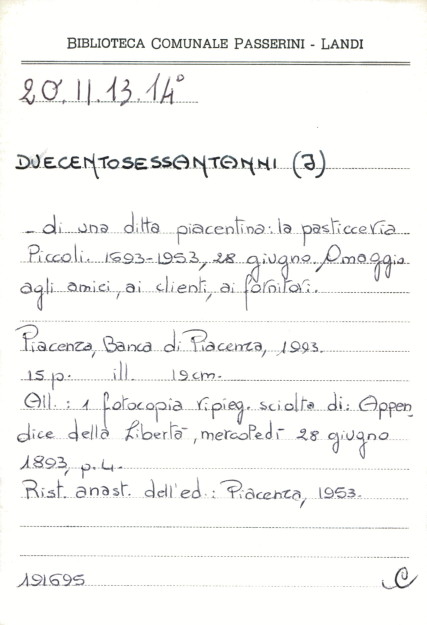 BIBLIOTECA COMUNALE PASSERINI - LANDI
20.II.13.14°
DUECENTOSESSANTANNI (I)
- di una ditta piacentina: la pasticceria
Piccoli. 1693-1953, 28 giugno. Omaggio
agli amici, ai clienti, ai fornitori.
Piacenza, Banca di Piacenza, 1993.
15 p. ill. 19 cm.
All.: 1 fotocopia ripieg. sciolta di: Appen
dice della Libertà, mercoledì 28 giugno
1893, p. 4.
Rist. anast. dell'ed.: Piacenza, 1953.
191695
C